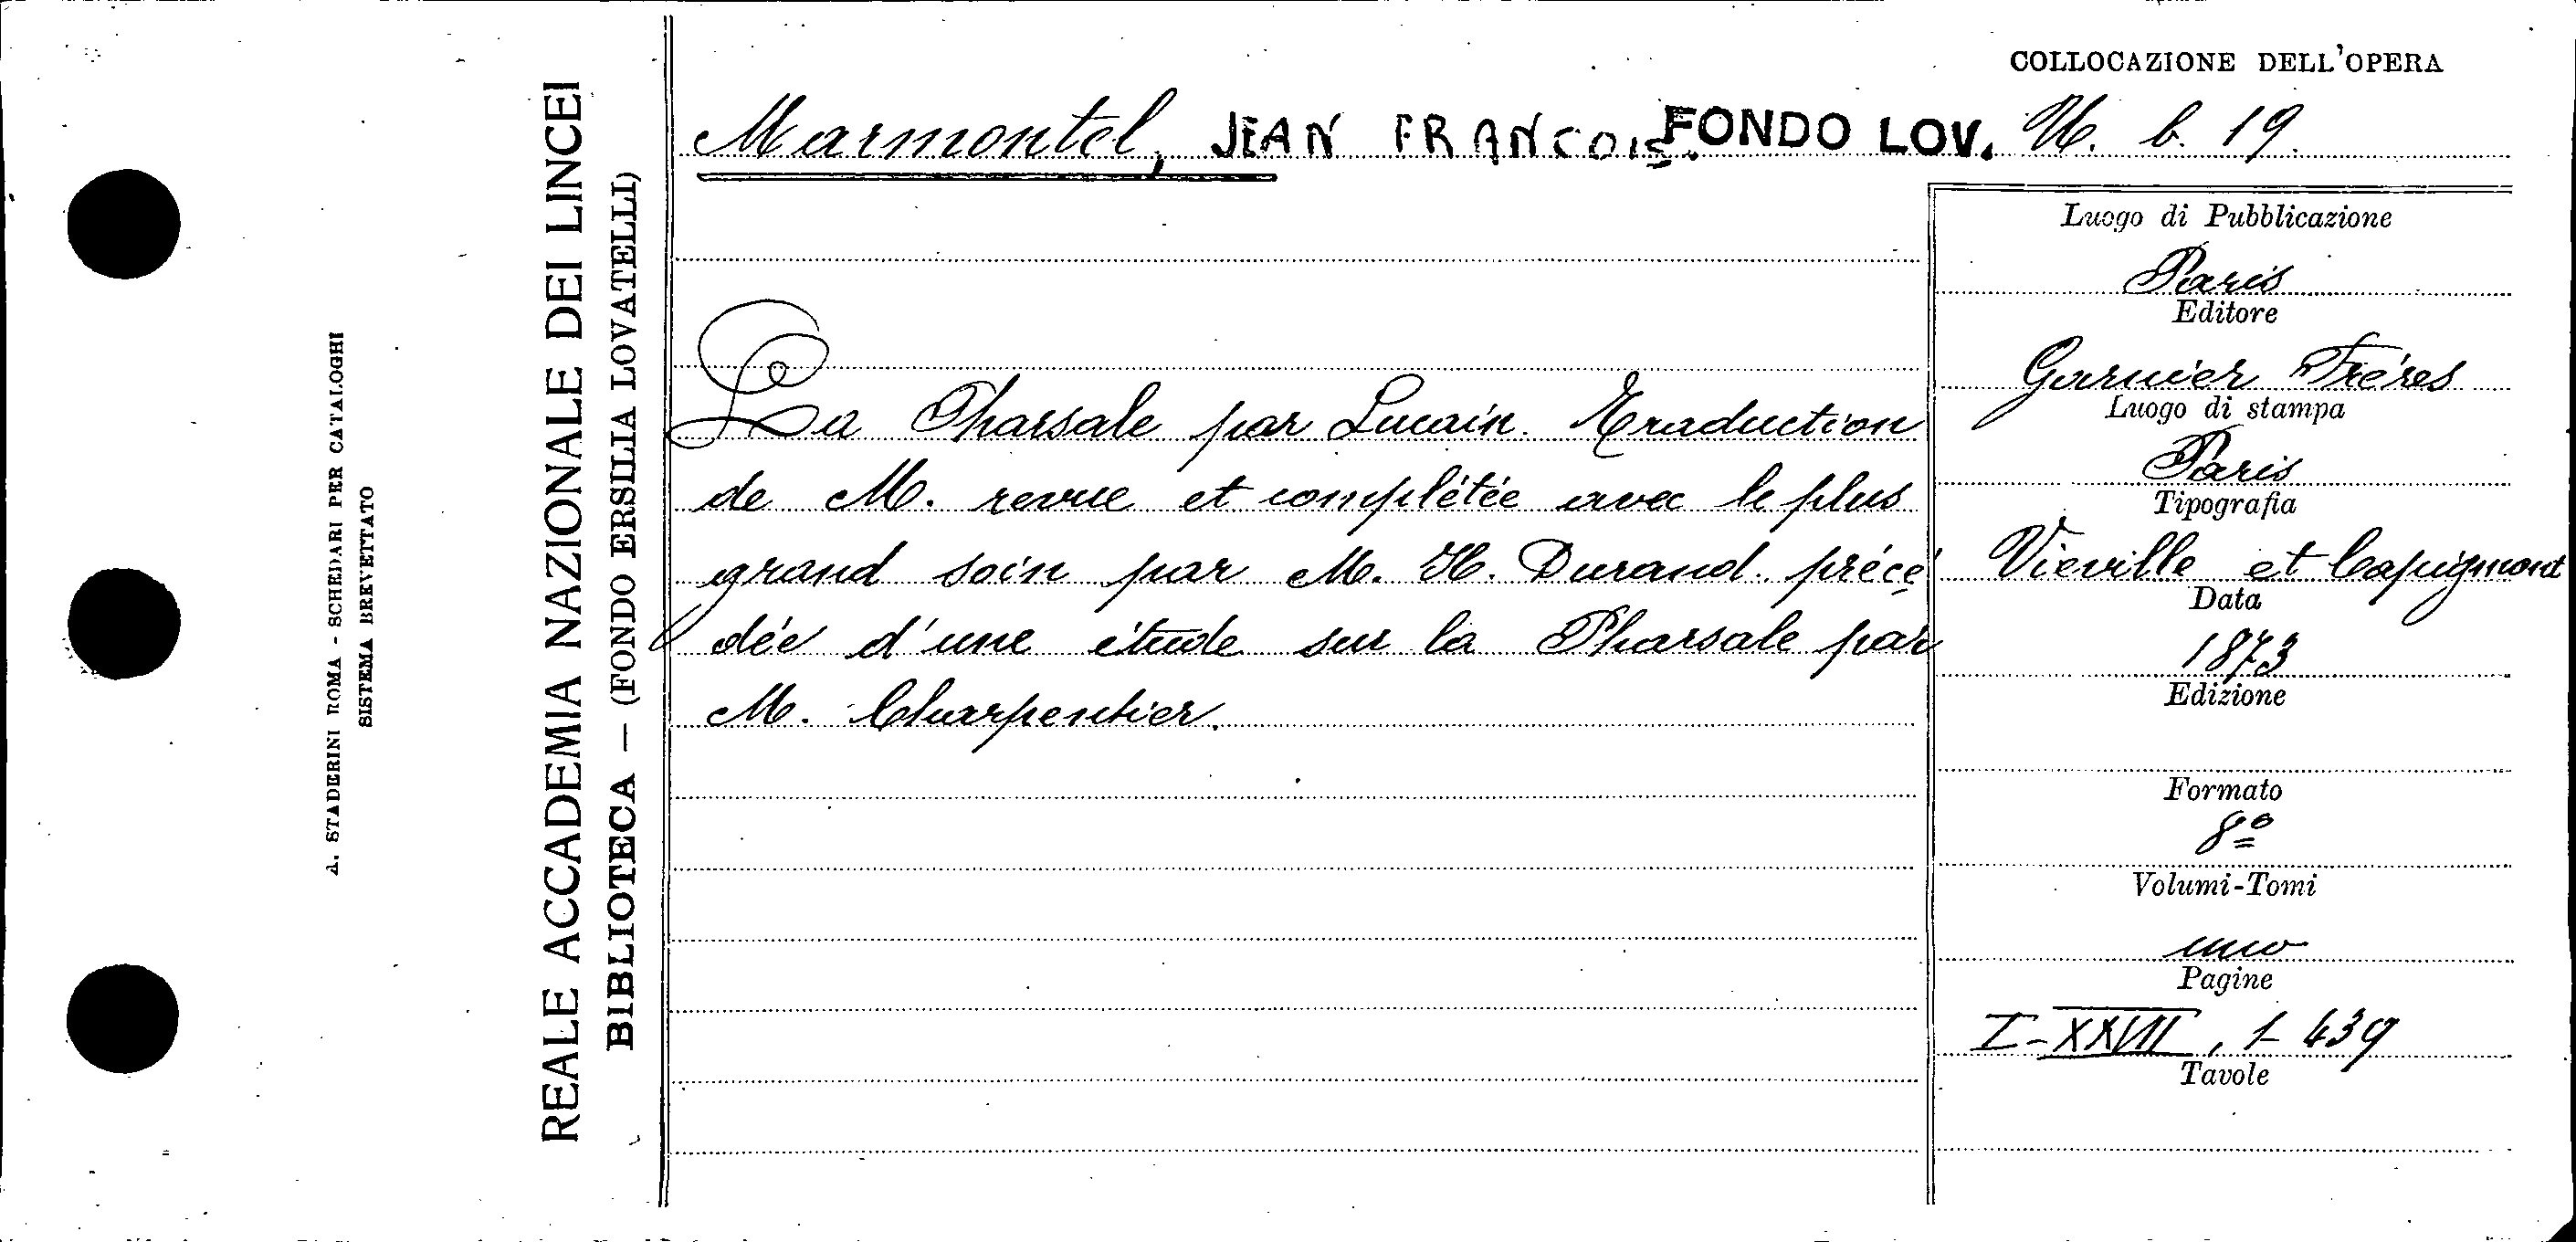 COLLOCAZIONE DELL'OPERA
Marmontel, JEAN FRANCOIS. FONDO LOV. b. 19.
La Pharsale par Lucain. Traduction
de M. revue et complétée avec le plus
grand soin par M. H. Durand. précé
dée d'une étude sur la Pharsale par
M. Charpentier.
Luogo di Pubblicazione
Paris
Editore
Garnier Fréres
Luogo di stampa
Paris
Tipografia
Vieville et Capiomont
Data
1873
Edizione
Formato
8º
Volumi-Tomi
uno
Pagine
I-XXVII, 1-439
Tavole
REALE ACCADEMIA NAZIONALE DEI LINCEI
BIBLIOTECA — (FONDO ERSILIA LOVATELLI)
A. STADERINI ROMA - SCHEDARI PER CATALOGHI
SISTEMA BREVETTATO